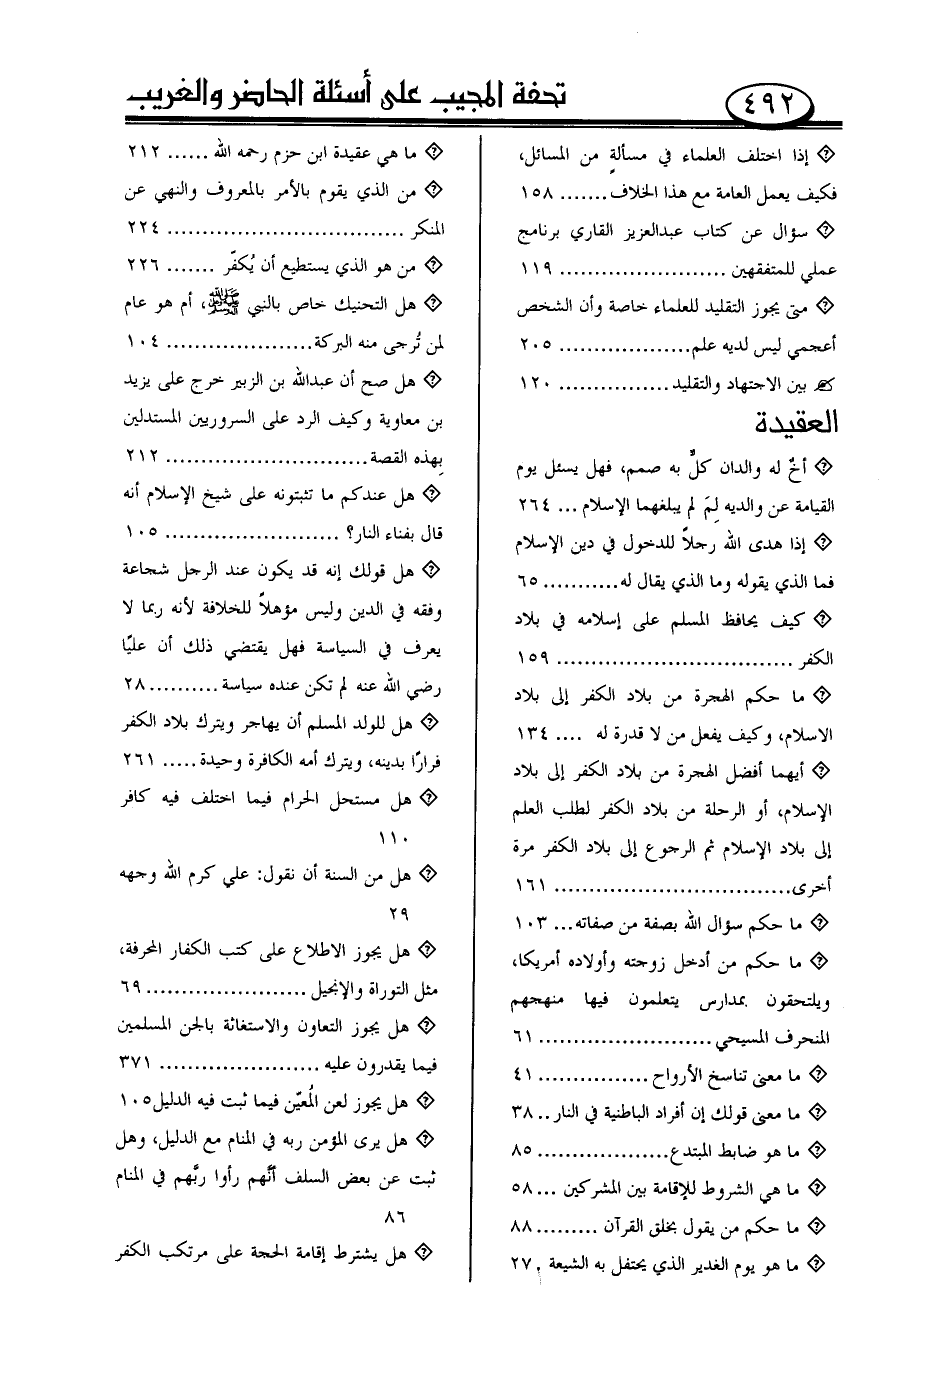 ٤٩٢
تحفة المجيب على أسئلة الحاضر والغريب
إذا اختلف العلماء في مسألةٍ من المسائل،
فكيف يعمل العامة مع هذا الخلاف....... ١٥٨
سؤال عن كتاب عبدالعزيز القاري برنامج
عملي للمتفقهين ........................ ١١٩
متى يجوز التقليد للعلماء خاصة وأن الشخص
أعجمي ليس لديه علم................... ٢٠٥
بين الاجتهاد والتقليد................ ١٢٠
العقيدة
أخٌ له والدان كلٌّ به صمم، فهل يسئل يوم
القيامة عن والديه لِمَ لم يبلغهما الإسلام ... ٢٦٤
إذا هدى الله رجلاً للدخول في دين الإسلام
فما الذي يقوله وما الذي يقال له........... ٦٥
كيف يحافظ المسلم على إسلامه في بلاد
الكفر ............................... ١٥٩
ما حكم الهجرة من بلاد الكفر إلى بلاد
الاسلام، وكيف يفعل من لا قدرة له .... ١٣٤
أيهما أفضل الهجرة من بلاد الكفر إلى بلاد
الإسلام، أو الرحلة من بلاد الكفر لطلب العلم
إلى بلاد الإسلام ثم الرجوع إلى بلاد الكفر مرة
أخرى............................... ١٦١
ما حكم سؤال الله بصفة من صفاته... ١٠٣
ما حكم من أدخل زوجته وأولاده أمريكا،
ويلتحقون بمدارس يتعلمون فيها منهجهم
المنحرف المسيحي......................... ٦١
ما معنى تناسخ الأرواح................ ٤١
ما معنى قولك إن أفراد الباطنية في النار.. ٣٨
ما هو ضابط المبتدع................... ٨٥
ما هي الشروط للإقامة بين المشركين ... ٥٨
ما حكم من يقول بخلق القرآن ......... ٨٨
ما هو يوم الغدير الذي يحتفل به الشيعة . ٢٧
ما هي عقيدة ابن حزم رحمه الله ...... ٢١٢
من الذي يقوم بالأمر بالمعروف والنهي عن
المنكر ................................ ٢٢٤
من هو الذي يستطيع أن يُكفّر ....... ٢٢٦
هل التحنيك خاص بالنبي ﷺ، أم هو عام
لمن تُرجى منه البركة..................... ١٠٤
هل صح أن عبدالله بن الزبير خرج على يزيد
بن معاوية وكيف الرد على السروريين المستدلين
بِهذه القصة............................. ٢١٢
هل عندكم ما تثبتونه على شيخ الإسلام أنه
قال بفناء النار؟ ......................... ١٠٥
هل قولك إنه قد يكون عند الرجل شجاعة
وفقه في الدين وليس مؤهلاً للخلافة لأنه ربما لا
يعرف في السياسة فهل يقتضي ذلك أن عليًا
رضي الله عنه لم تكن عنده سياسة.......... ٢٨
هل للولد المسلم أن يهاجر ويترك بلاد الكفر
فرارًا بدينه، ويترك أمه الكافرة وحيدة..... ٢٦١
هل مستحل الحرام فيما اختلف فيه كافر
١١٠
هل من السنة أن نقول: علي كرم الله وجهه
٢٩
هل يجوز الاطلاع على كتب الكفار المحرفة،
مثل التوراة والإنجيل....................... ٦٩
هل يجوز التعاون والاستغاثة بالجن المسلمين
فيما يقدرون عليه ....................... ٣٧١
هل يجوز لعن المُعيّن فيما ثبت فيه الدليل١٠٥
هل يرى المؤمن ربه في المنام مع الدليل، وهل
ثبت عن بعض السلف أنَّهم رأوا ربَّهم في المنام
٨٦
هل يشترط إقامة الحجة على مرتكب الكفر